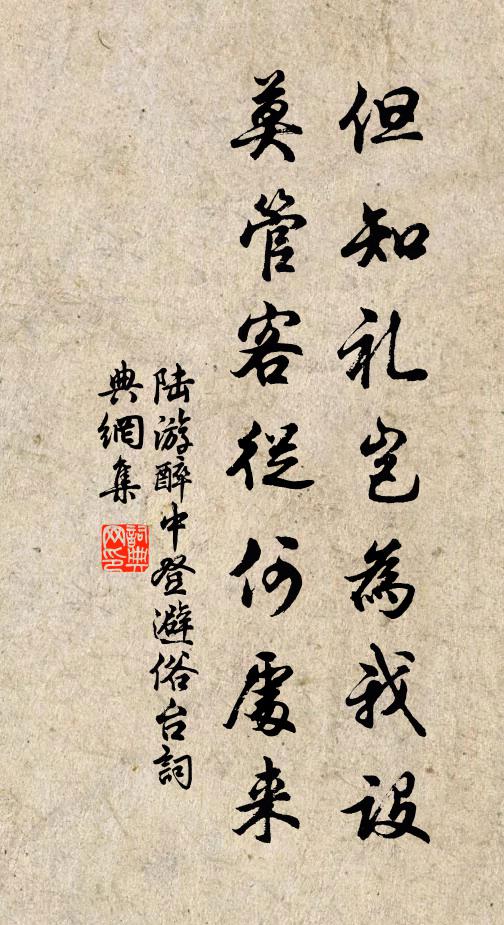 但知礼岂為我設
莫管客従何處来
陆游醉中登避俗台詞
典網集
詞典
网印